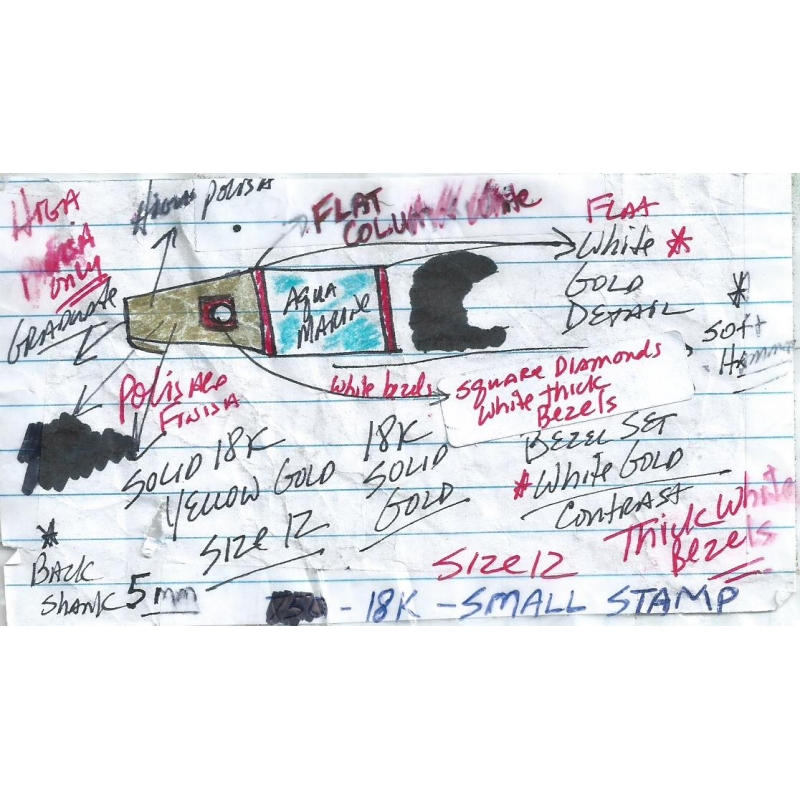 HIGH
ONLY
HIGH POLISH
GRADUATE
FLAT
COLU
White
FLAT
White *
GOLD
DETAIL
*
SOFT
AQUA
MARINE
POLISHED
FINISH
White bezels
SQUARE DIAMONDS
White thick
Bezels
SOLID 18K
YELLOW GOLD
SIZE 12
18K
SOLID
GOLD
BEZEL SET
*White GOLD
CONTRAST
Thick White
Bezels
SIZE 12
*
BACK
Shank 5mm
- 18K - SMALL STAMP